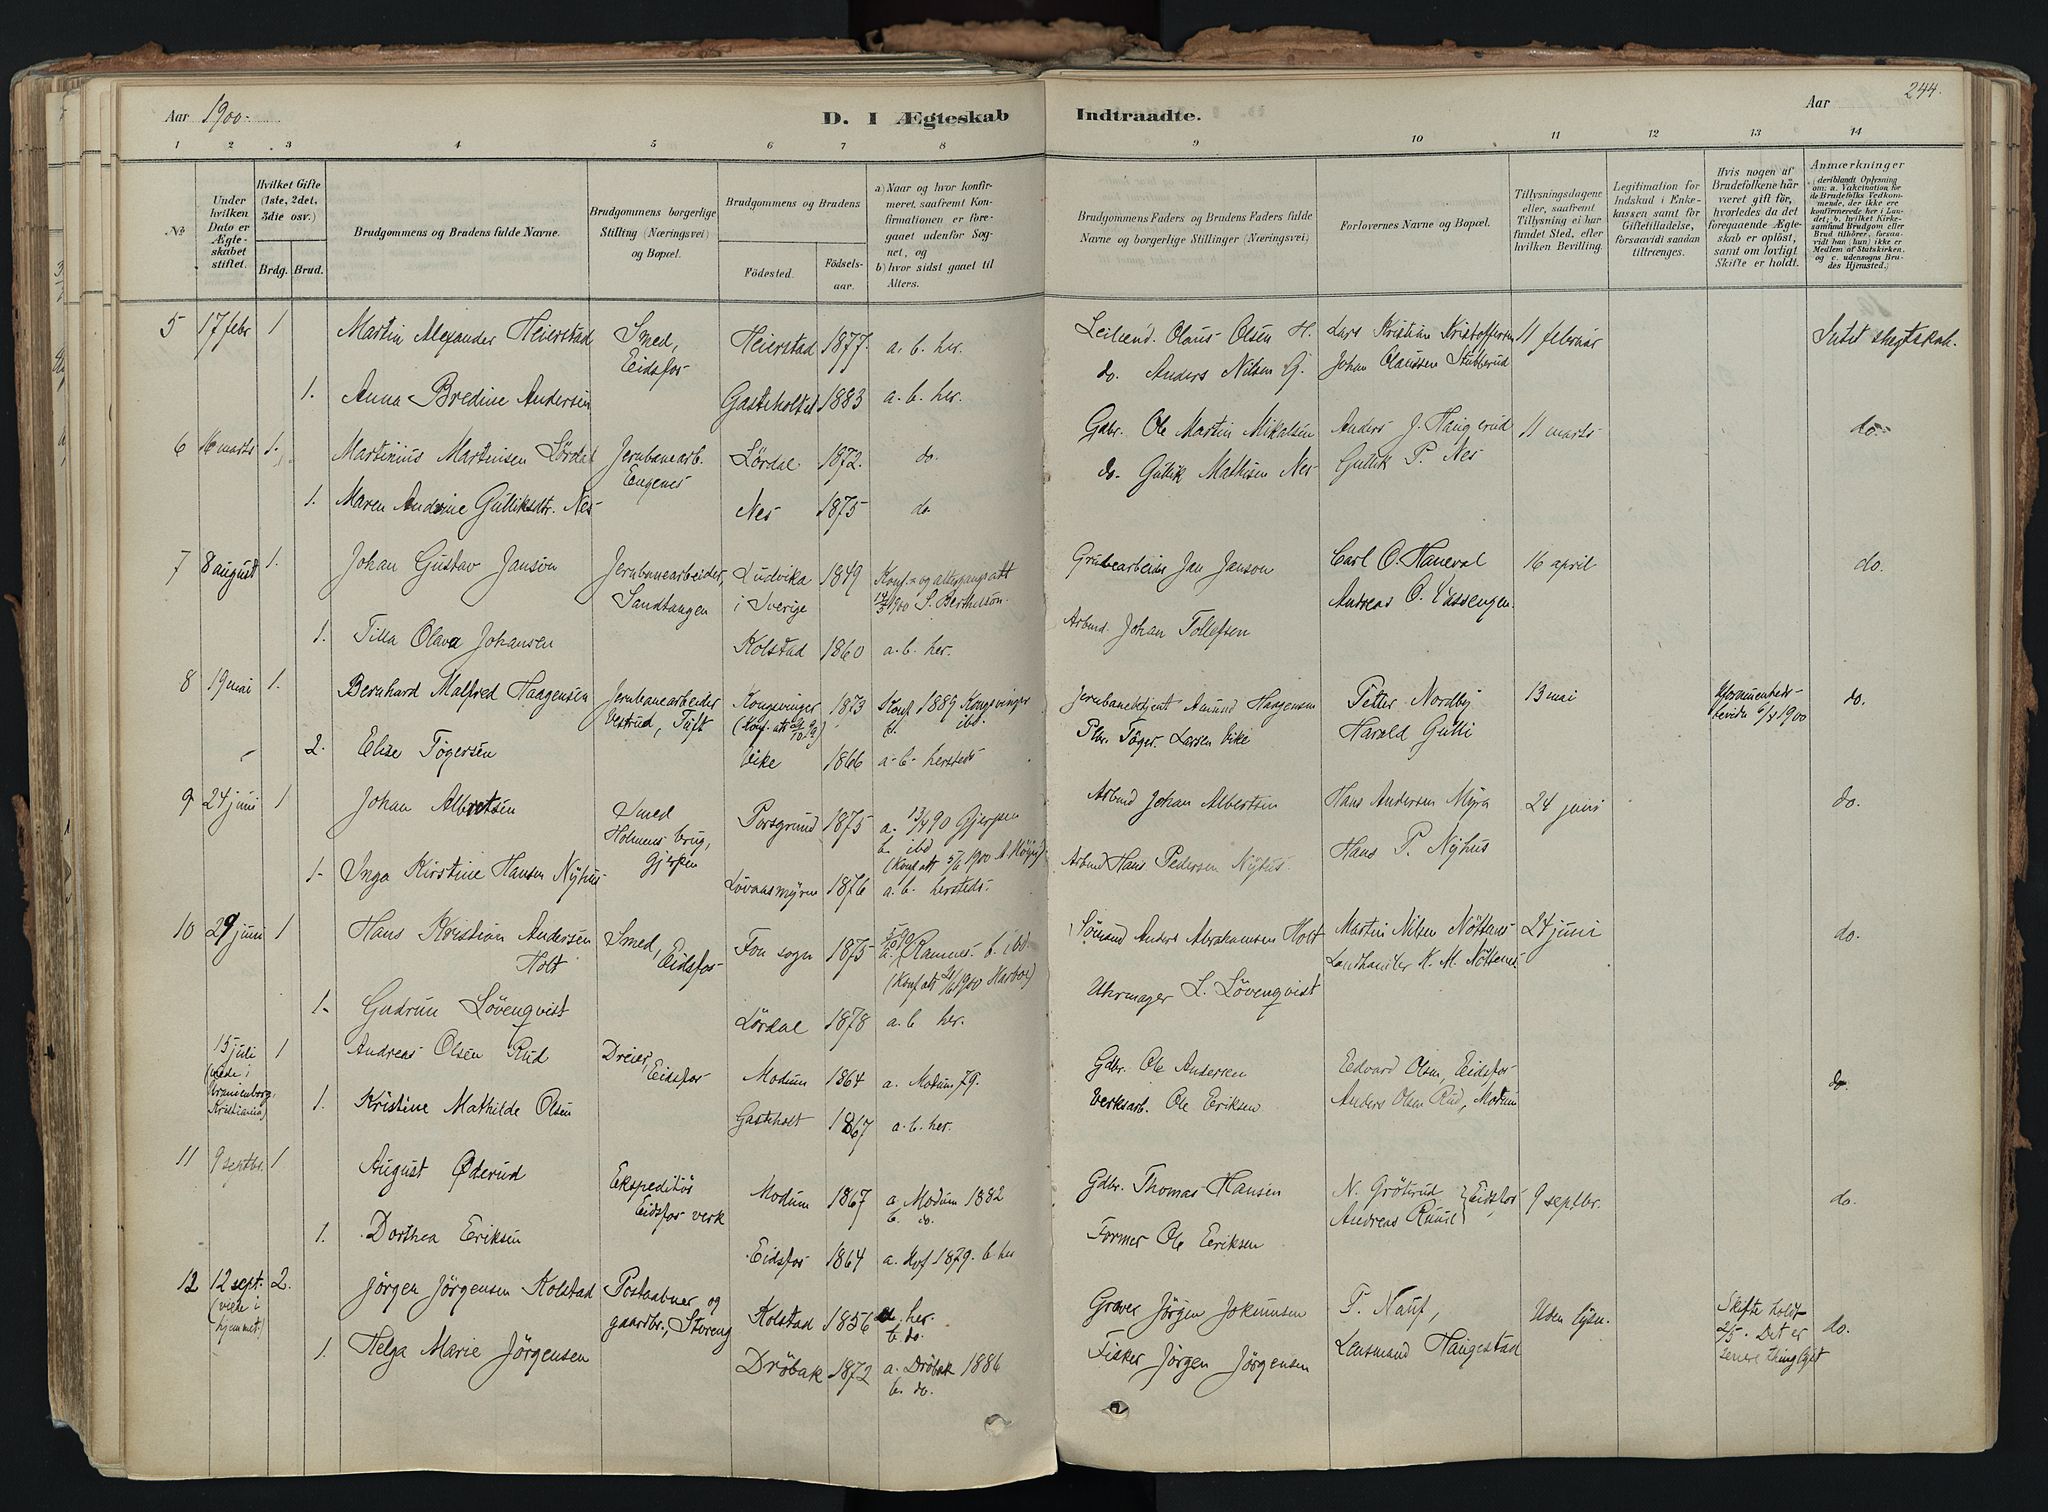 Aar 1900.
D. I Ægteskab Indtraadte.
Aar
244.
1 2 3 4 5 6 7 8 9 10 11 12 13 14
№
Under hvilken Dato er Ægteskabet stiftet.
Hvilket Gifte (1ste, 2det, 3die osv.)
Brdg. Brud.
Brudgommens og Brudens fulde Navne.
Brudgommens borgerlige Stilling (Næringsvei) og Bopæl.
Brudgommens og Brudens
Födested.
Födselsaar.
a) Naar og hvor konfirmeret, saafremt Konfirmationen er foregaaet udenfor Sognet, og
b) hvor sidst gaaet til Alters.
Brudgommens Faders og Brudens Faders fulde Navne og borgerlige Stillinger (Næringsvei).
Forlovernes Navne og Bopæl.
Tillysningsdagene eller, saafremt Tillysning ei har fundet Sted, efter hvilken Bevilling.
Legitimation for Indskud i Enkekassen samt for Giftetilladelse, forsaavidt saadan tiltrænges.
Hvis nogen af Brudefolkene har været gift før, hvorledes da det foregaaende Ægteskab er oplöst, samt om lovligt Skifte er holdt.
Anmærkninger (deriblandt Oplysning om: a. Vakcination for de Brudefolks Vedkommende, der ikke ere konfirmerede her i Landet; b. hvilket Kirkesamfund Brudgom eller Brud tilhörer, forsaavidt han (hun) ikke er Medlem af Statskirken, og c. udensogns Brudes Hjemsted.)
5 17 febr 1 Martin Alexander Heierstad Smed, Eidsfos Heierstad 1877. a. b. her. Leilend. Olaus Olsen H. Lars Kristian Kristoffersen 11 februar Intet slegtskab.
1. Anna Bredine Andersen Gasteholtet 1883 a. b. her. do. Anders Nilsen G. Johan Claussen Stubberud
6 16 marts 1. Martinius Martinisen Lördal Jernbanearb. Engenes Lördal 1872. do. Gdbr. Ole Martin Mikalsen Anders J. Haugerud 11 marts do.
1. Maren Andrine Gulliksdtr. Nes Nes 1875 do. do. Gullik Mathisen Nes Gullik P. Nes
7 8 august 1. Johan Gustav Janson Jernbanearbeider, Sandtangen Ludvika i Sverige 1849 Konf.- og altergangsatt 1900 S. Berthelson. Grubearbeider Jan Janson Carl O. Haneval 16 april do.
1. Tilla Olava Johansen Kolstad 1860 a. b. her. Arbmd. Johan Tollefsen Andreas O. Vassengen.
8 19 mai 1. Bernhard Malfred Haagensen Jernbanearbeider Vestrud, Tuft Kongsvinger 1873 Konf 1889 Kongsvinger b. ibd. Jernbanebetjent Amund Haagensen Petter Nordby 13 mai 6/3 1900 do.
2. Elise Tögersen Vike 1866 a- b- hersteds Töger Larsen Vike Harald Gulli
9 24 juni 1 Johan Albretsen Smed Holmens brug, Gjerpen Porsgrund 1875 a. 13/4 90 Gjerpen b. ibd (Konf att 5/6 1900 Arbmd Johan Albertsen Hans Andersen Myra 24 juni do.
1- Inga Kirstine Hansen Nyhus Lövaasmyren 1876 a. b. hersteds. Arbmd Hans Pedersen Nyhus. Hans P. Nyhus
10 29 juni 1 Hans Kristian Andersen Holt Smed, Eidsfos Fon sogn 1875 a. Ramnes. b. ibd (Konf att 1900 Harboe) Sömand Anders Abrahamsen Holt Martin Nilsen Nöttenes 24 juni do.
1- Gudrun Lövenqvist Lördal 1878 a. b her. Uhrmager L. Lövenqvist Landhandler K. M. Nöttenes
15 juli (viede i Uranienborg, Kristiania) 1 Andreas Olsen Rud Dreier, Eidsfos Modum 1864 a. Modum 79. Gdbr. Ole Andersen Edvard Olsen, Eidsfos do.
1. Kristine Mathilde Olsen Gasteholt 1867 a. b. her. Verksarb. Ole Eriksen Anders Olsen Rud, Modum
11 9 septbr. 1 August Øderud Ekspeditör Eidsfos verk Modum 1867 a. Modum 1882 b. do. Gdbr. Thomas Hansen N. Grötterud } Eidsfos 9 septbr. do.
1. Dorthea Eriksen Eidsfos 1864 a. Hof 1879. b her Former Ole Eriksen Andreas Ruud
12 12 sept. (viede i hjemmet.) 2. Jörgen Jörgensen Kolstad Postaabner og gaardbr., Storeng Kolstad 1856 a. her. b. do. Graver Jörgen Jokumsen P. Nauf, Uden lysn. Skifte holdt 2/5. Det er senere thinglyst do.
1. Helga Marie Jörgensen Dröbak 1872 a. Dröbak 1886 b. do. Fisker Jörgen Jörgensen Lensmand Haugestad